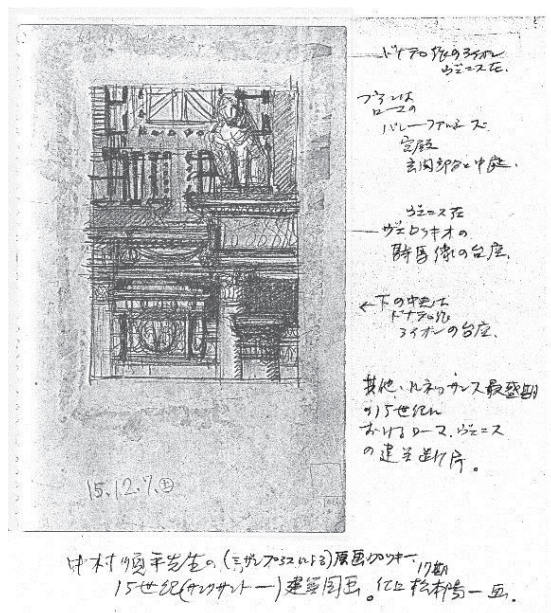 ドナテロ作のライオン
ヴェニス在.
プランは
ローマの
パレーファルネーズ
宮殿
玄関部分と中庭.
ヴェニス在
ヴェロッキオの
騎馬像の台座.
←下の中央は
ドナテロ作
ライオンの台座.
其他、ルネッサンス最盛期
の15世紀に
おけるローマ、ヴェニス
の建築
15.12.7.土
中村順平先生の(による)原画
17期
15世紀()建築図画。松本陽一画.